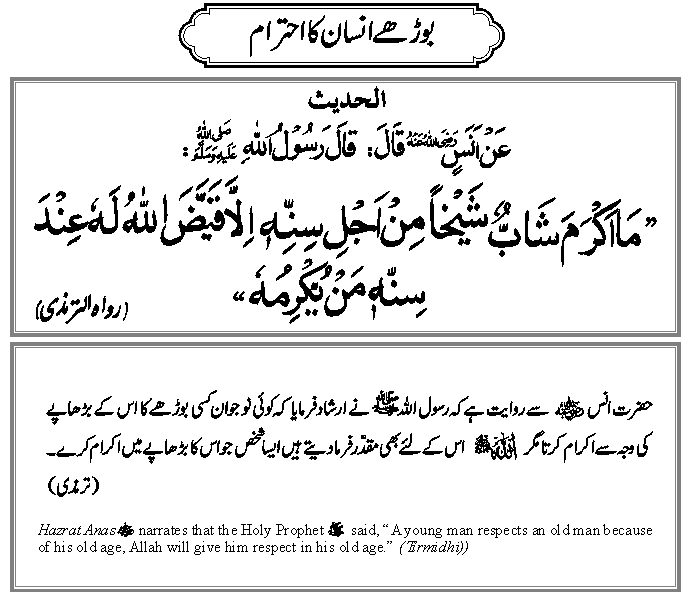 بوڑھے انسان کا احترام
الحدیث
عَنْ اَنَسٍ رَضِیَ اللّٰہُ عَنْہُ قَالَ: قَالَ رَسُوْلُ اللّٰہِ صَلَّی اللّٰہُ عَلَیْہِ وَسَلَّمَ:
”مَا اَکْرَمَ شَابٌّ شَیْخاً مِنْ اَجْلِ سِنِّہٖ اِلَّا قَیَّضَ اللّٰہُ لَہٗ عِنْدَ
سِنِّہٖ مَنْ یُّکْرِمُہٗ“ (رواہ الترمذی)
حضرت انس رضی اللہ عنہ سے روایت ہے کہ رسول اللہ ﷺ نے ارشاد فرمایا کہ کوئی نوجوان کسی بوڑھے کا اس کے بڑھاپے
کی وجہ سے اکرام کرتا مگر اللہ ﷻ اس کے لئے بھی مقدر فرما دیتے ہیں ایسا شخص جو اس کا بڑھاپے میں اکرام کرے۔
(ترمذی)
Hazrat Anas narrates that the Holy Prophet ﷺ said, “A young man respects an old man because
of his old age, Allah will give him respect in his old age.” (Tirmidhi))